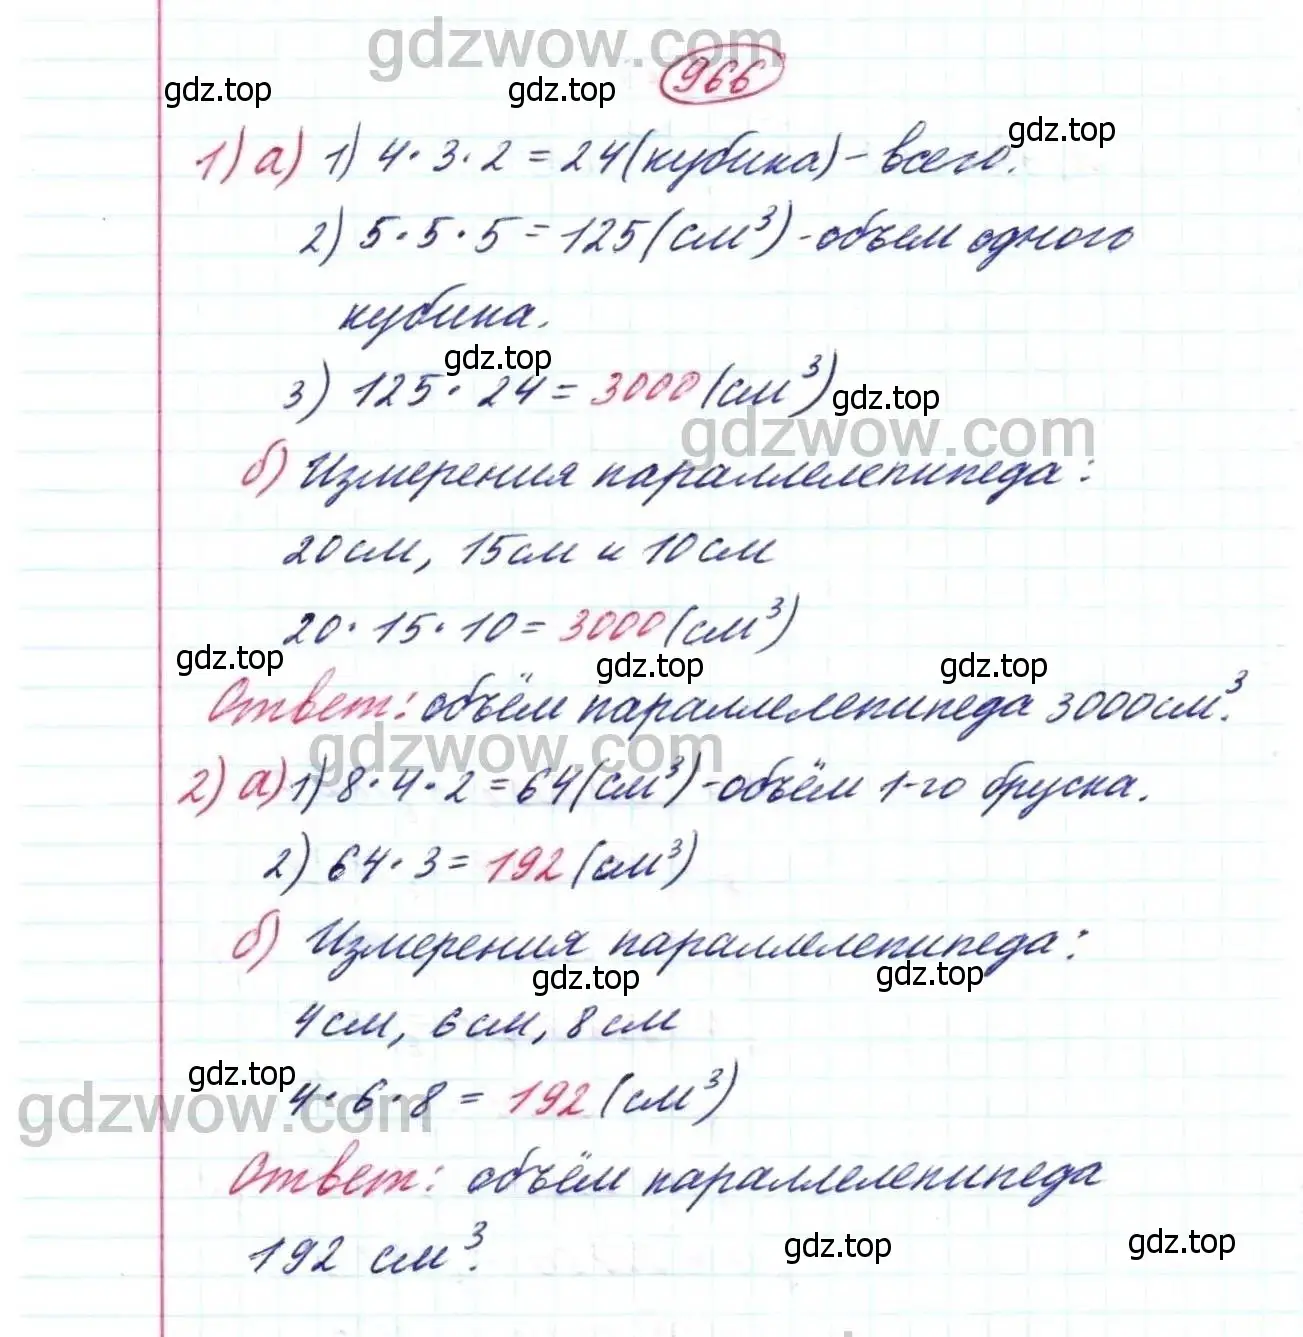 gdzwow.com
966
gdz.top gdz.top
gdz.top
1) а) 1) 4·3·2=24(кубика)-всего.
2) 5·5·5=125(см³)-объем одного
кубика.
gdz.top
3) 125·24=3000(см³)
gdz.top
gdzwow.com
б) Измерения параллелепипеда:
20см, 15см и 10см
20·15·10=3000(см³)
gdz.top gdz.top gdz.top
Ответ: объём параллелепипеда 3000см³.
gdzwow.com
2) а) 1) 8·4·2=64(см³)-объём 1-го бруска.
2) 64·3=192(см³)
б) Измерения параллелепипеда:
gdz.top gdz.top
4см, 6см, 8см
gdz.top
4·6·8=192(см³)
gdzwow.com
Ответ: объём параллелепипеда
192 см³.
gdz.top gdz.top